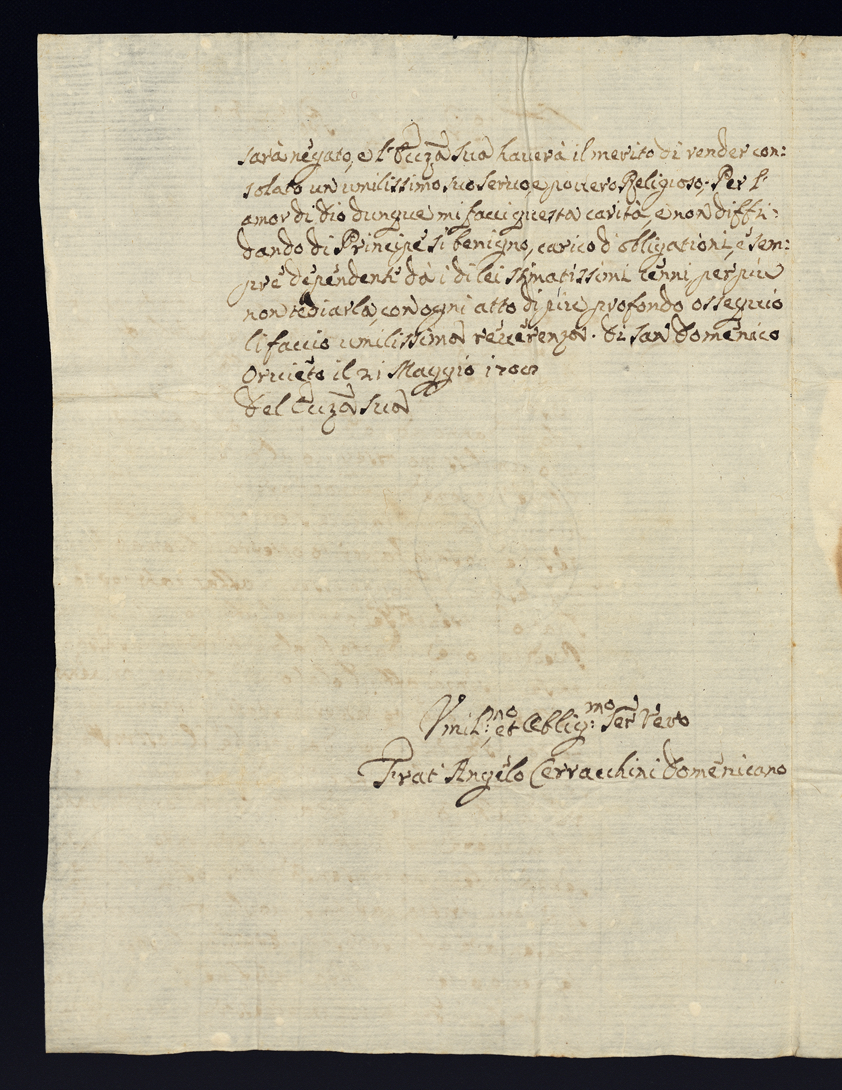 sarà negato, e l'Ecc.za sua haverà il merito di render con:
solato un umilissimo suo servo e povero Religioso. Per l'
amor di dio dunque mi facci questa carità, e non diffi:
dando di Principe si benigno, carico d'obligationi, e sem:
pre dependente da i di lei stimatissimi Cenni per più
non tediarla, con ogni atto di più profondo ossequio
li faccio umilissima reverenza. di san domenico
Orvieto il 21 Maggio
del Ecc.za sua
Umil:mo et Oblig:mo Ser Vero
Frat' Angelo Cerracchini domenicano